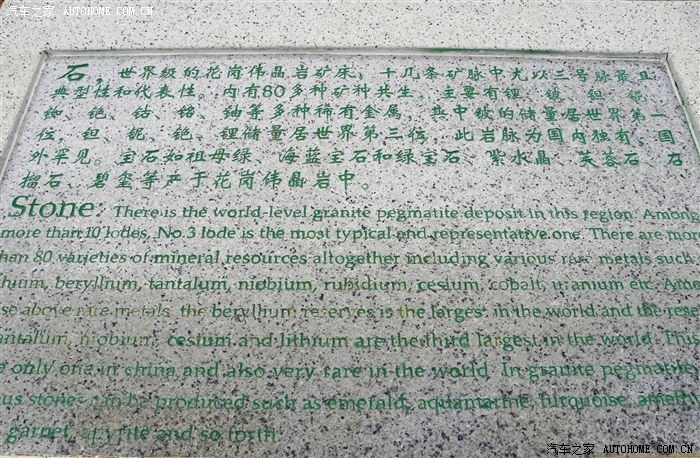 汽车之家 AUTOHOME.COM.CN
石，世界级的花岗伟晶岩矿床，十几条矿脉中尤以三号脉最具
典型性和代表性。内有80多种矿种共生，主要有锂、铍、钽、铌、
铷、铯、钴、铪、铀等多种稀有金属，其中铍的储量居世界第一
位，钽、铌、铯、锂储量居世界第三位，此岩脉为国内独有，国
外罕见。宝石如祖母绿、海蓝宝石和绿宝石、紫水晶、芙蓉石、石
榴石、碧玺等产于花岗伟晶岩中。
Stone: There is the world-level granite pegmatite deposit in this region. Among
more than 10 lodes, No.3 lode is the most typical and representative one. There are more
than 80 varieties of mineral resources altogether including various rare metals such
hium, beryllium, tantalum, niobium, rubidium, cesium, cobalt, uranium etc. Amo
se above rare metals, the beryllium reserves is the largest in the world and the rese
antalum, niobium, cesium and lithium are the third largest in the world. This
e only one in china and also very rare in the world. In granite pegmatite
us stones can be produced such as emerald, aquamarine, turquoise, ameth
garnet, and so forth.
汽车之家 AUTOHOME.COM.CN